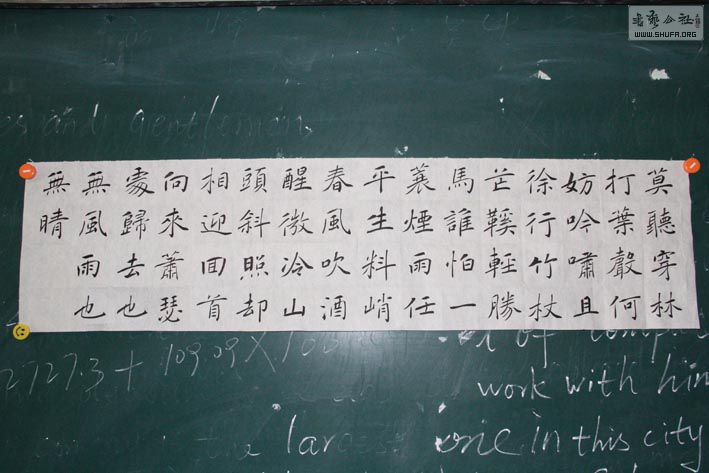 書藝公社
WWW.SHUFA.ORG
and gentlemen
莫聽穿林
打葉聲何
妨吟嘯且
徐行竹杖
芒鞵輕勝
馬誰怕一
蓑煙雨任
平生料峭
春風吹酒
醒微冷山
頭斜照却
相迎回首
向來蕭瑟
處歸去也
無風雨也
無晴
2727.3 + 109.09 X
of
work with him
the one in this city